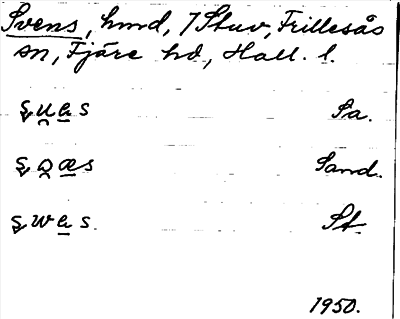 Svens, hmd, 7 Stuv, Frillesås
sn, Fjäre hd, Hall. l.
Sa.
Sand.
St.
1950.